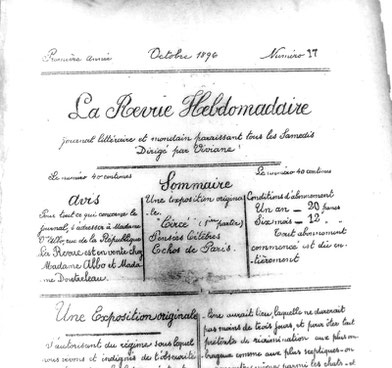 Première année Octobre 1896 Numéro 17
La Revue Hebdomadaire
Journal littéraire et mondain paraissant tous les Samedis
Dirigé par Viviane !
Le numéro 40 centimes
Le numéro 40 centimes
Avis
Pour tout ce qui concerne le
journal, s'adresser à Madame
D'Albo rue de la République
La Revue est en vente chez
Madame Albo et Mada
me
Sommaire
Une exposition origina
le.
"Circé" (1ère partie)
Pensées Célèbres
Echos de Paris.
Conditions d'abonnement
Un an — 20 francs
Six mois — 12 "
Tout abonnement
commencé est dû en-
tièrement
Une Exposition originale
S'autorisant du régime sous lequel
nous vivons et indignés de l'obscurité
lière aurait lieu, laquelle ne durerait
pas moins de trois jours, et pour ôter tout
prétexte de récrimination aux plus om-
brageux comme aux plus sceptiques - on
par les chats - et